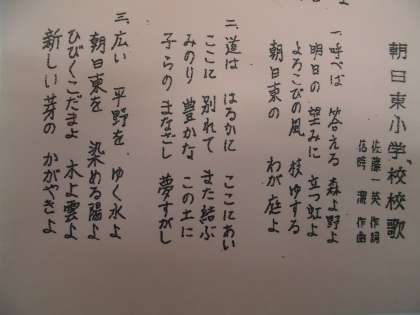 朝日東小学校校歌
佐藤一英 作詞
信時 潔 作曲
一、呼べば 答える 森よ野よ
明日の 望みに 立つ虹よ
よろこびの風 枝ゆする
朝日東の わが庭よ
二、道は はるかに ここにあい
ここに 別れて また結ぶ
みのり 豊かな この土に
子らの まなざし 夢すがし
三、広い 平野を ゆく水よ
朝日東を 染める陽よ
ひびくこだまよ 木よ雲よ
新しい芽の かがやきよ